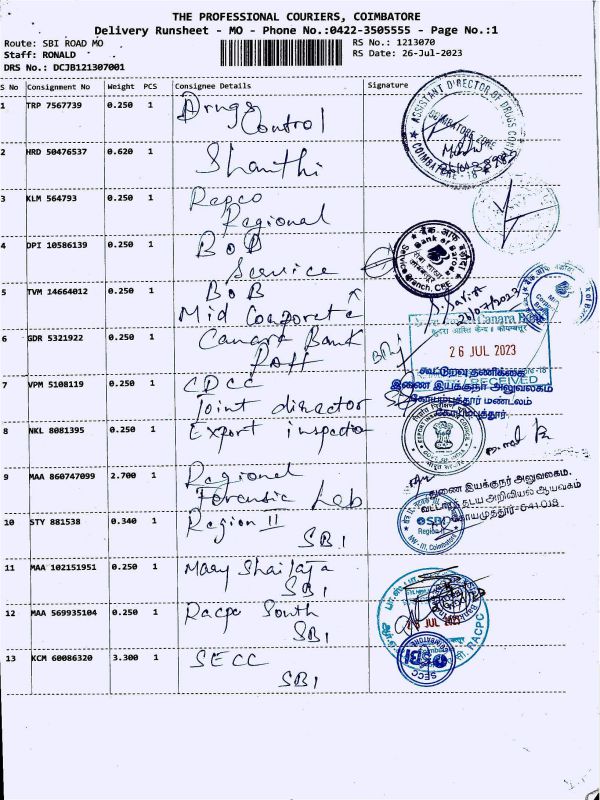 THE PROFESSIONAL COURIERS, COIMBATORE
Delivery Runsheet - MO - Phone No.:0422-3505555 - Page No.:1
Route: SBI ROAD MO
RS No.: 1213070
Staff: RONALD
RS Date: 26-Jul-2023
DRS No.: DCJB121307001
S No Consignment No Weight PCS Consignee Details Signature
1 TRP 7567739 0.250 1 Drugs
Control
ASSISTANT DIRECTOR OF DRUGS CONTROL
COIMBATORE ZONE
COIMBATORE-18
2 HRD 50476537 0.620 1 Shanthi
3 KLM 564793 0.250 1 Repco
Regional
4 DPI 10586139 0.250 1 BOB
Service
Bank of Baroda
Service Branch, CBE
5 TVM 14664012 0.250 1 BOB
Mid Coaporate
26/07/2023
6 GDR 5321922 0.250 1 Canara Bank
Canara Bank
26 JUL 2023
RECEIVED
7 VPM 5108119 0.250 1 CDCC
Joint director
கூட்டுறவு தணிக்கை
இணை இயக்குநர் அலுவலகம்
கோயம்புத்தூர் மண்டலம்
கோயம்புத்தூர்.
8 NKL 8081395 0.250 1 Export inspector
9 MAA 860747099 2.700 1 Regional
Forensic Lab
துணை இயக்குநர் அலுவலகம்.
வட்டார தடய அறிவியல் ஆய்வகம்
கோயமுத்தூர்-641018
10 STY 881538 0.340 1 Region II
SBI
SBI
Region II
11 MAA 102151951 0.250 1 Mary Shailaja
SBI
12 MAA 569935104 0.250 1 Racpc South
SBI
JUL 2023
RACPC
13 KCM 60086320 3.300 1 SECC
SBI
SBI
SECC